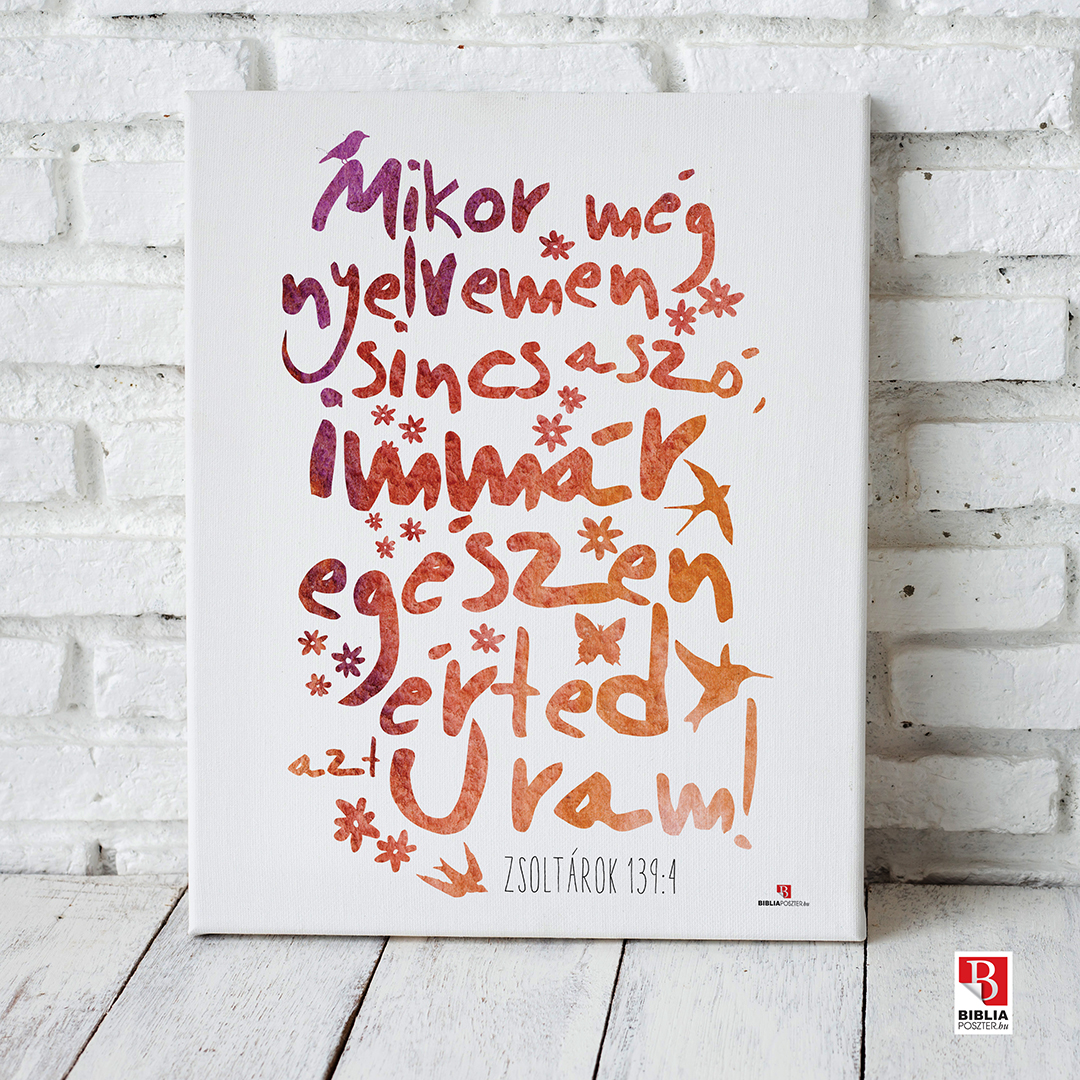 Mikor még
nyelvemen
sincs a szó,
immár
egészen
érted
azt Uram!
ZSOLTÁROK 139:4
B
BIBLIAPOSZTER.hu
B
BIBLIA
POSZTER.hu